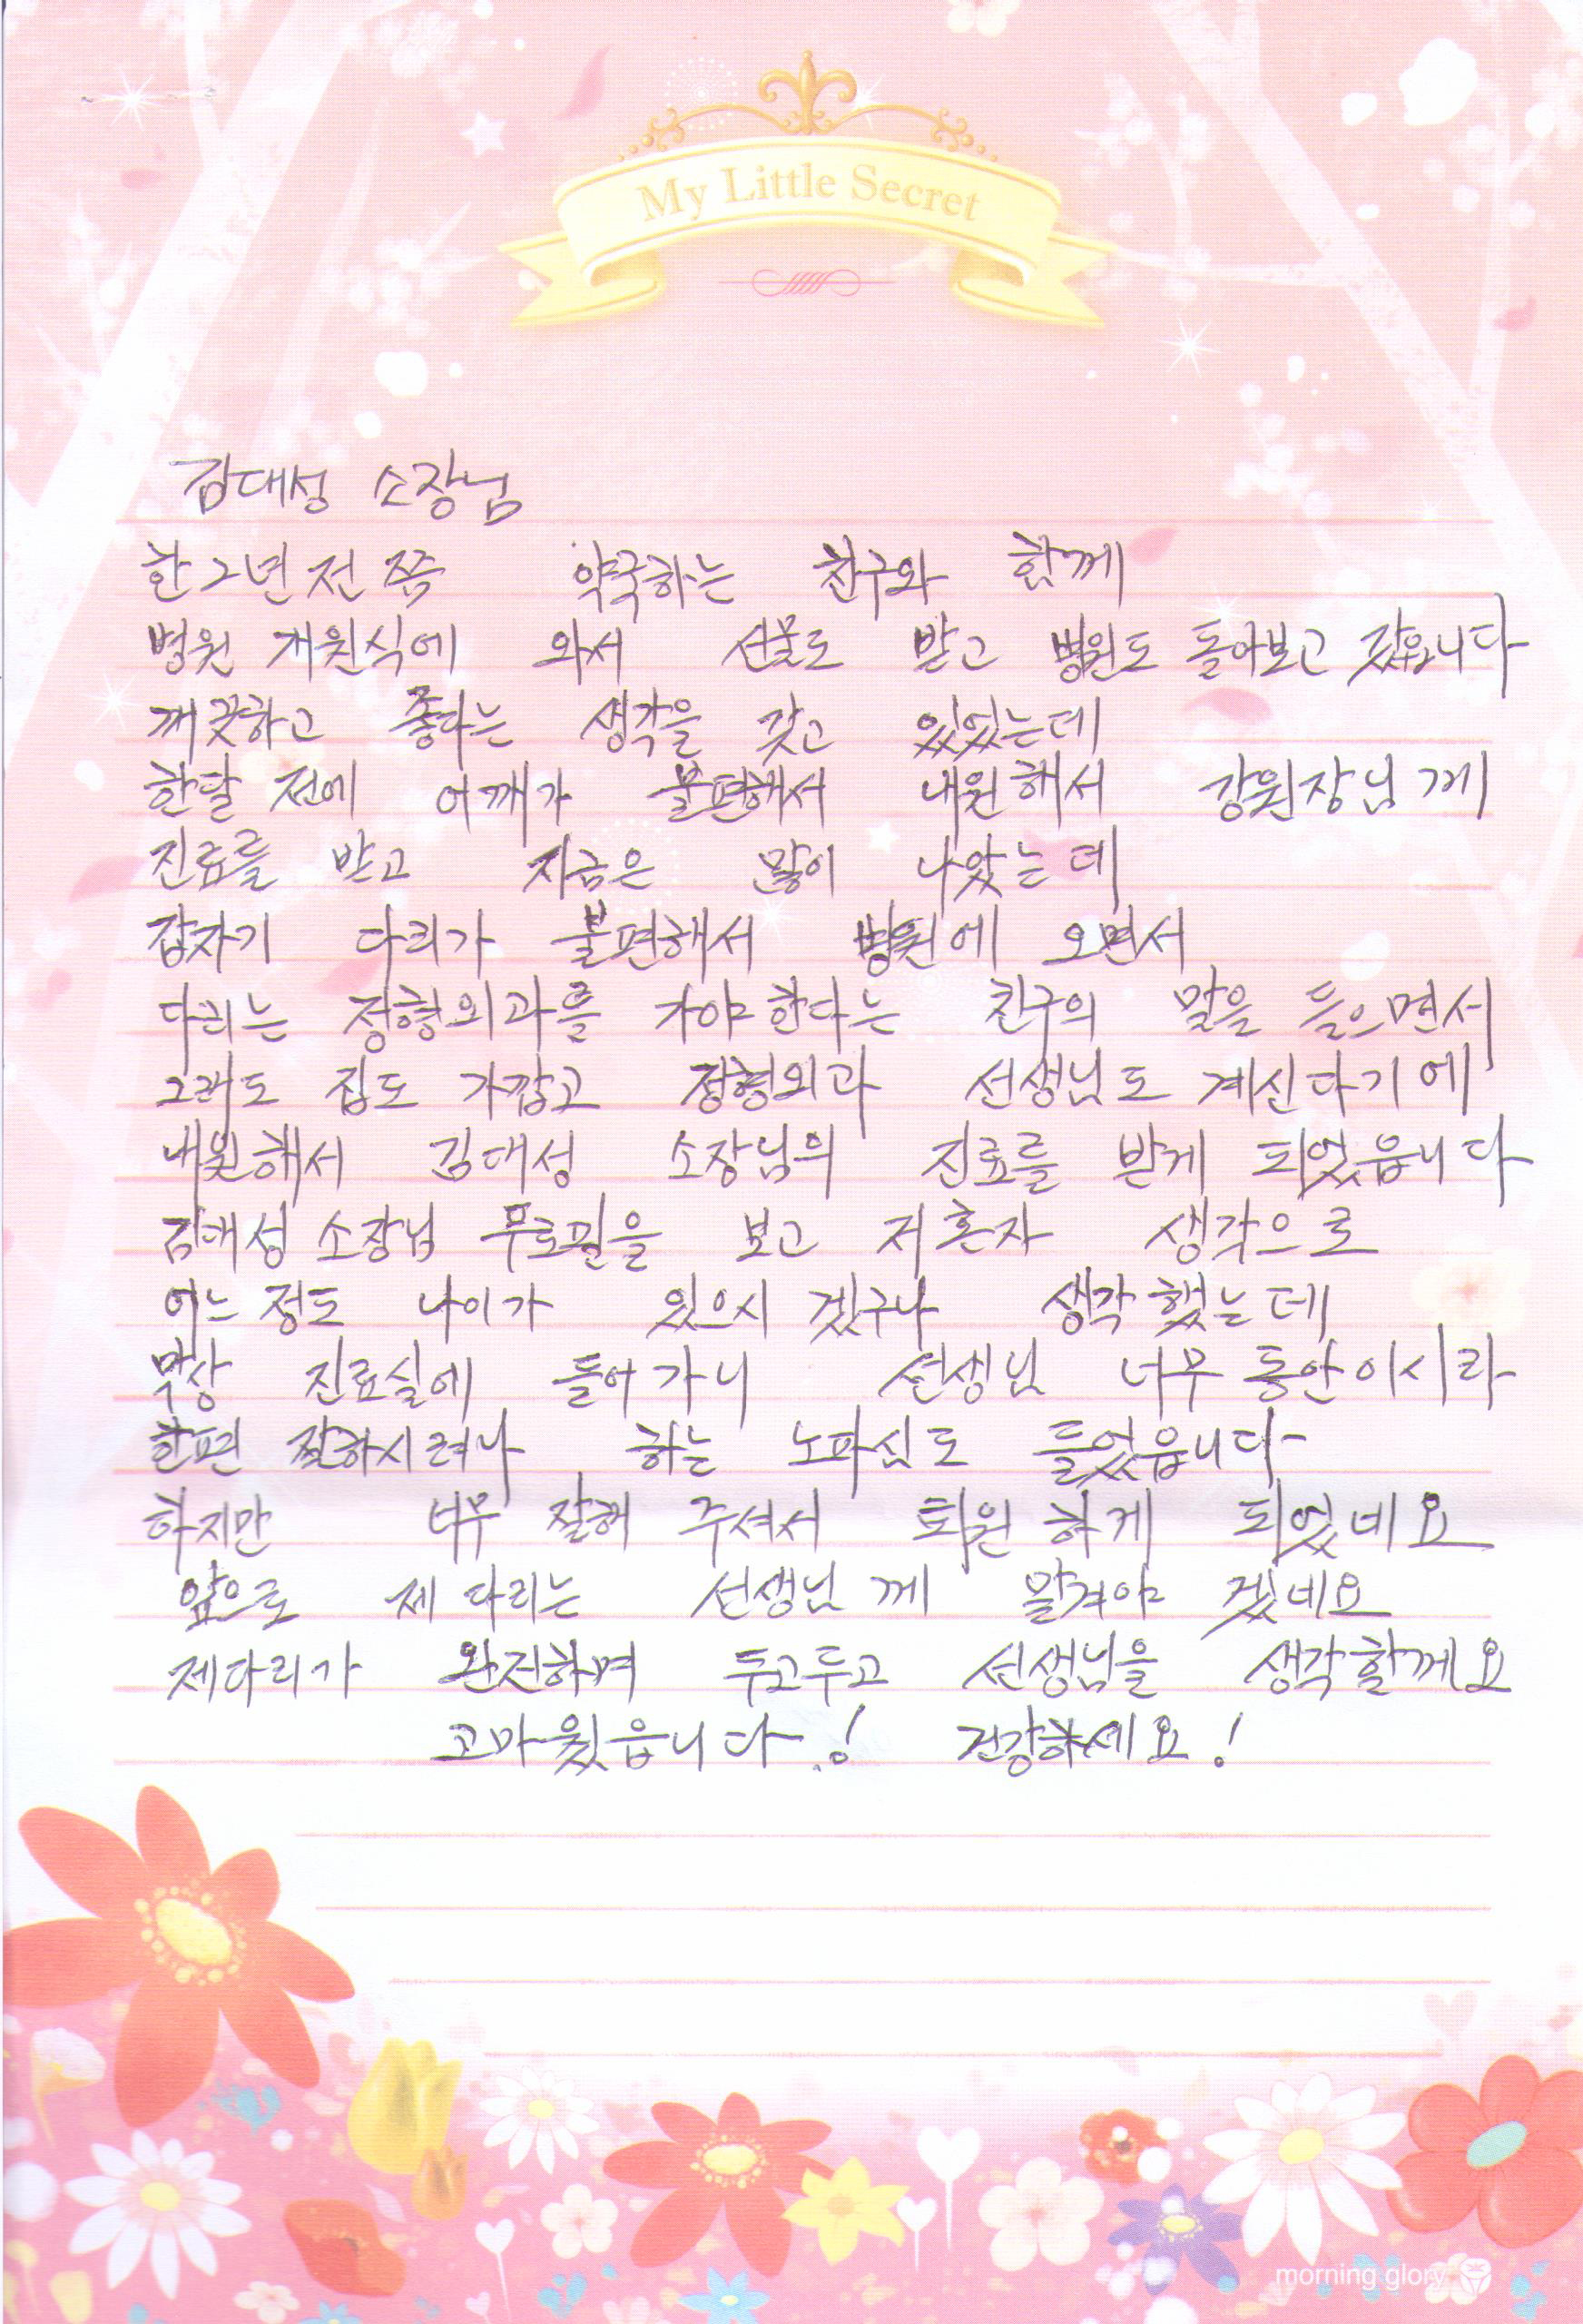 My Little Secret
김대성 소장님
한 2년 전 쯤 약국하는 친구와 함께
병원 개원식에 와서 선물도 받고 병원도 돌아보고 갔읍니다
깨끗하고 좋다는 생각을 갖고 있었는데
한달 전에 어깨가 불편해서 내원해서 강원장님께
진료를 받고 지금은 많이 나았는데
갑자기 다리가 불편해서 병원에 오면서
다리는 정형외과를 가야 한다는 친구의 말을 들으면서
그래도 집도 가깝고 정형외과 선생님도 계신다기에
내원해서 김대성 소장님의 진료를 받게 되었읍니다
김대성 소장님 푸로필을 보고 저 혼자 생각으로
어느 정도 나이가 있으시 겠구나 생각 했는데
막상 진료실에 들어가니 선생님 너무 동안이시라
한편 잘하시려나 하는 노파심도 들었읍니다
하지만 너무 잘해 주셔서 퇴원 하게 되었네요
앞으로 제 다리는 선생님께 맡겨야 겠네요
제다리가 완전하며 두고두고 선생님을 생각할께요
고마웠읍니다.! 건강하세요!
morning glory